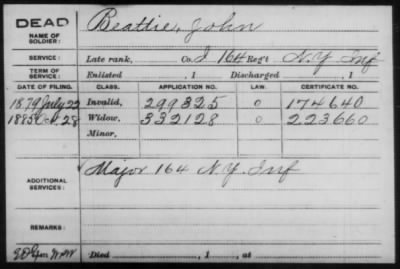 DEAD
NAME OF SOLDIER: Beattie, John
SERVICE: Late rank, Co. I 164 Reg't N.Y. Inf
TERM OF SERVICE: Enlisted , 1 Discharged , 1
DATE OF FILING. CLASS. APPLICATION NO. LAW. CERTIFICATE NO.
1879 July 22 Invalid, 299325 o 174640
1885 Oct. 28 Widow, 332128 o 223660
Minor,
ADDITIONAL SERVICES: Major 164 N.Y. Inf
REMARKS:
Died , 1 , at